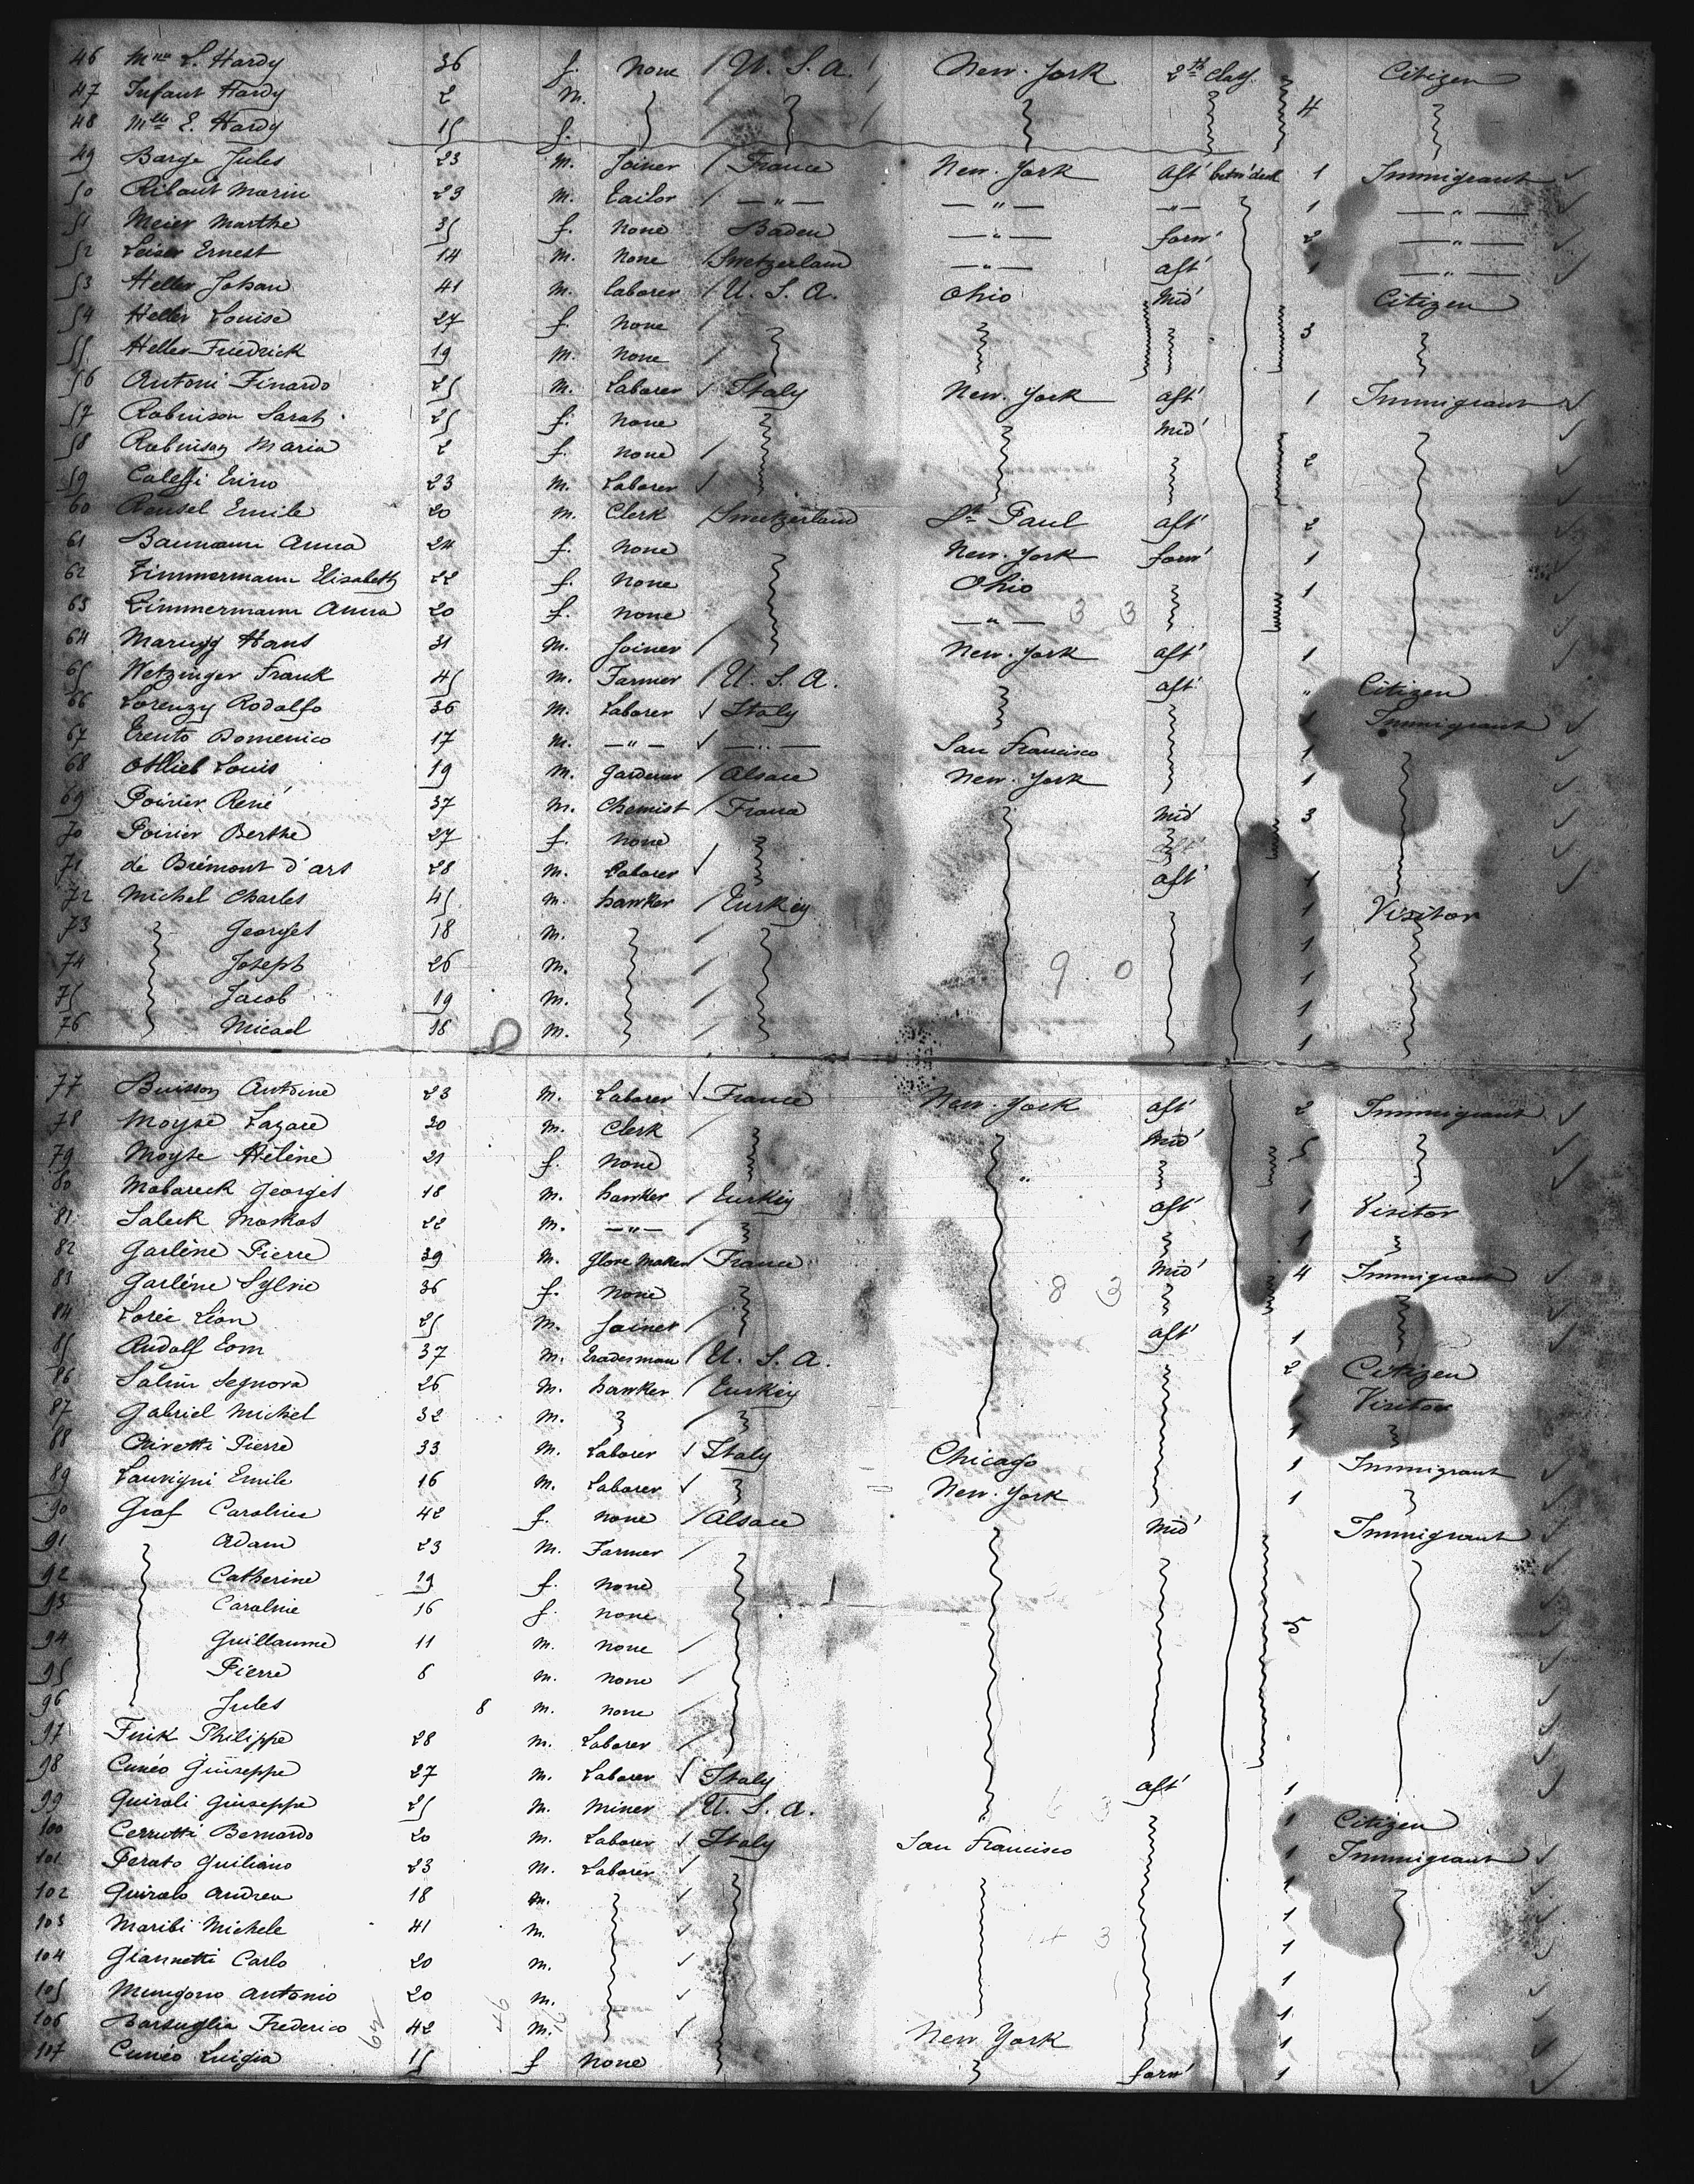 46 Mme L. Hardy 36 f. None / U. S. A. New-York 2th Class Citizen
47 Infant Hardy 2 M. 4
48 Mlle E. Hardy 15 f.
49 Barge Jules 23 M. Joiner / France New-York aft' betw' deck 1 Immigrant ✓
50 Ribaut Marin 23 M. Tailor / — " — — " — — " — 1 — " — ✓
51 Meier Marthe 35 f. None Baden — " — forw' 2 — " — ✓
52 Leiser Ernest 14 M. None / Swetzerland — " — aft' 1 — " — ✓
53 Heller Johan 41 M. Laborer / U. S. A. Ohio Mid' Citizen
54 Heller Louise 27 f. None / 3
55 Heller Friedrick 19 M. None /
56 Antoni Finardo 25 M. Laborer ✓ Italy New-York aft' 1 Immigrant ✓
57 Robinson Sarah 25 f. None Mid' ✓
58 Robinson Maria 2 f. None / 2 ✓
59 Caleffi Erino 23 M. Laborer ✓ ✓
60 Reusel Emile 20 M. Clerk / Swetzerland St Paul aft' 2 ✓
61 Baumann Anna 24 f. None New-York forw' 1 ✓
62 Zimmermann Elisabeth 22 f. None Ohio 1 ✓
63 Zimmermann Anna 20 f. None — " — 3 3 ✓
64 Marugg Hans 31 M. Joiner / New-York aft' 1 ✓
65 Wetzinger Frank 45 M. Farmer / U. S. A. aft' " Citizen
66 Lorenzy Rodolfo 36 M. Laborer ✓ Italy 1 Immigrant ✓
67 Trento Domenico 17 M. — " — ✓ — " — San Francisco 1 ✓
68 Ottlieb Louis 19 M. Gardener / Alsace New-York 1 ✓
69 Poirier René 37 M. Chemist / France Mid' 3 ✓
70 Poirier Berthe 27 f. None ✓
71 de Brémont d'ars 28 M. Laborer ✓ aft' 1 ✓
72 Michel Charles 45 M. hawker / Turkey 1 Visitor
73 Georges 18 M. / 1
74 Joseph 26 M. / 9 0 1
75 Jacob 19 M. / 1
76 Micael 18 M. / 1
77 Buisson Antoine 23 M. Laborer ✓ France New-York aft' 2 Immigrant ✓
78 Moyse Lazare 20 M. Clerk / Mid' 5 ✓
79 Moyse Hélène 21 f. None " ✓
80 Mabareck Georges 18 M. hawker / Turkey aft' 1 Visitor
81 Saleck Markos 22 M. — " — / 1
82 Garlène Pierre 39 M. Glove Maker / France Mid' 4 Immigrant ✓
83 Garlène Sylvie 36 f. None 8 3 ✓
84 Loréé Léon 25 M. Joiner / aft' 1 ✓
85 Rudolf Tom 37 M. Tradesman / U. S. A. 2 Citizen
86 Salim Segnora 26 M. hawker / Turkey 1 Visitor
87 Gabriel Michel 32 M. / 1
88 Chivetti Pierre 33 M. Laborer ✓ Italy Chicago 1 Immigrant ✓
89 Lauvigni Emile 16 M. Laborer ✓ New-York 1 ✓
90 Graf Caroline 42 f. None / Alsace Mid' Immigrant ✓
91 Adam 23 M. Farmer / ✓
92 Catherine 19 f. None ✓
93 Caroline 16 f. None 5 ✓
94 Guillaume 11 M. None / ✓
95 Pierre 6 M. None / ✓
96 Jules 8 M. None / ✓
97 Funk Philippe 28 M. Laborer / ✓
98 Cunéo Giuseppe 27 M. Laborer ✓ Italy aft' 1 ✓
99 Quiroli Giuseppe 25 M. Miner / U. S. A. " 6 3 1 Citizen
100 Cerrutti Bernardo 20 M. Laborer ✓ Italy San Francisco 1 Immigrant ✓
101 Perato Guiliano 23 M. Laborer ✓ 1 ✓
102 Quirolo Andrea 18 M. ✓ 1 ✓
103 Maribi Michele 41 M. ✓ 4 3 1 ✓
104 Giannetti Carlo 20 M. ✓ 1 ✓
105 Mungono Antonio 20 M. ✓ 1 ✓
106 Barsuglia Frederico 42 M. ✓ New York 1 ✓
107 Cunéo Luigia 15 f None forw' 1 ✓